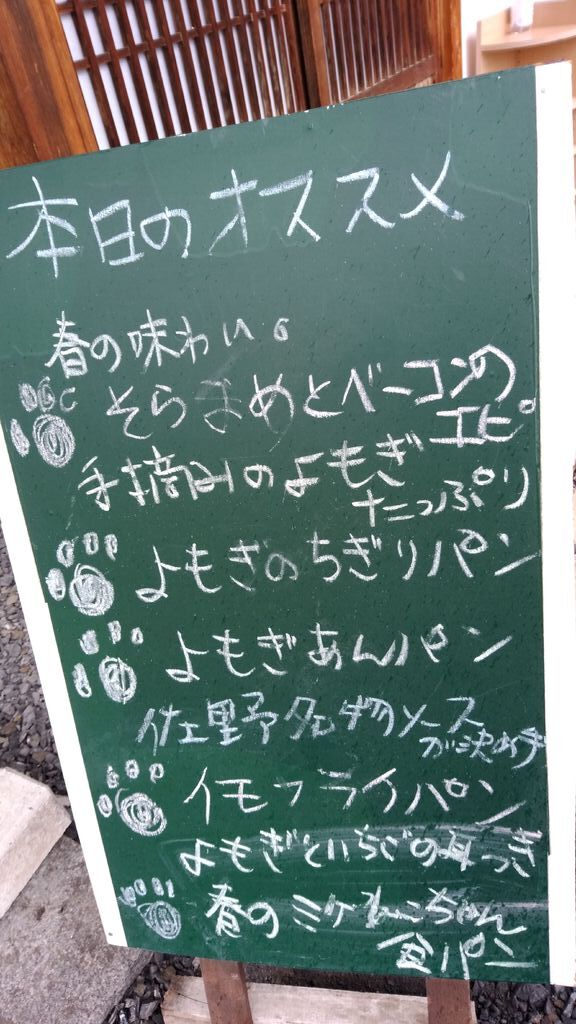 本日のオススメ
春の味わい。
そらまめとベーコンの
エピ
手摘みのよもぎ
たっぷり
よもぎのちぎりパン
よもぎあんパン
佐野
ソース
が決め手
イモフライパン
よもぎといちごの耳つき
春のミケねこちゃん
食パン